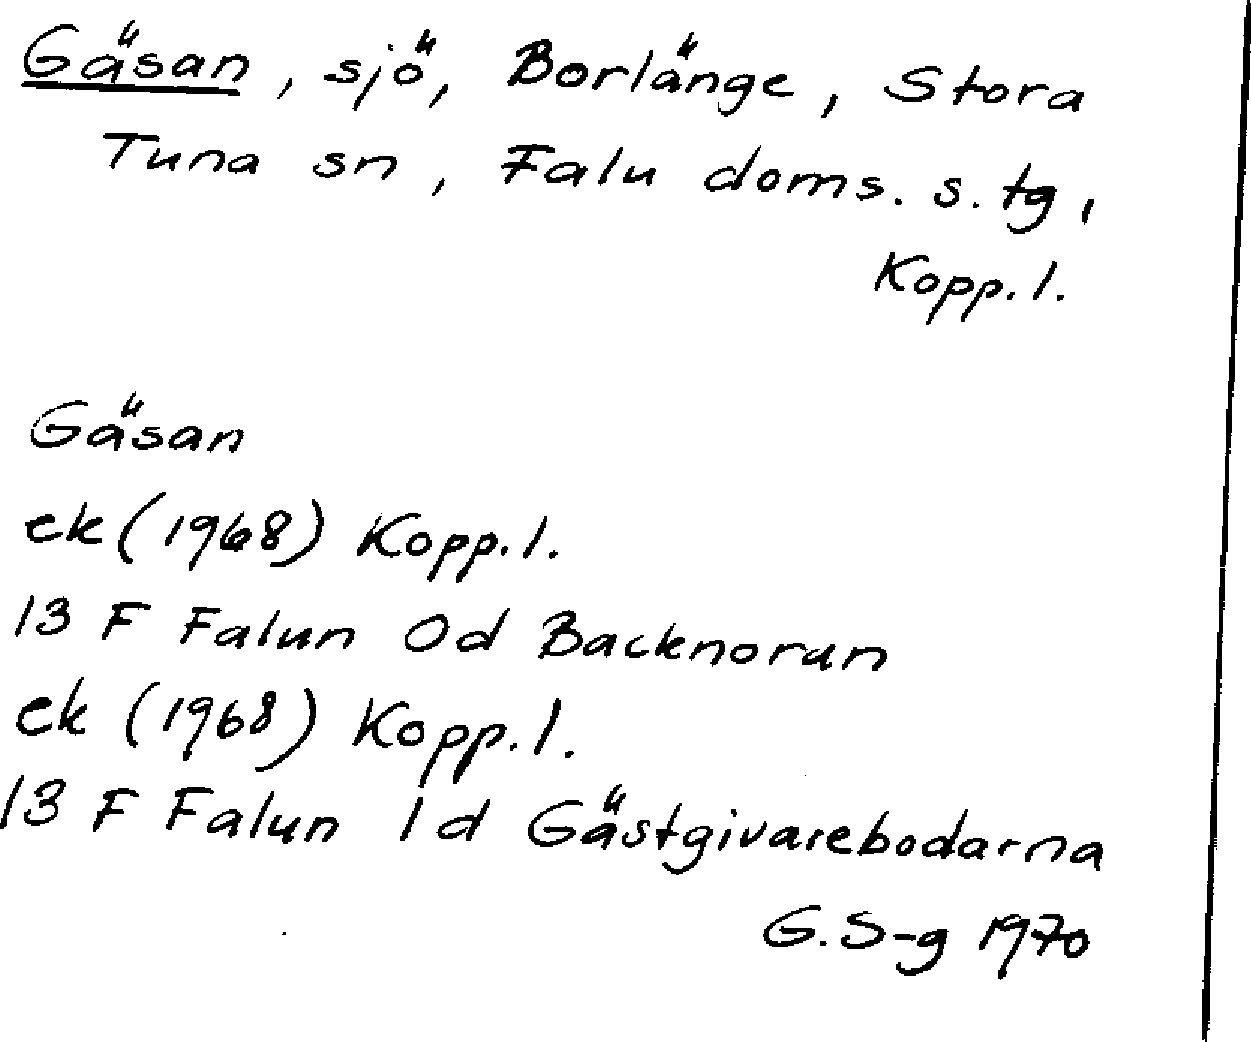 Gäsan, sjö, Borlänge, Stora
Tuna sn, Falu doms. s. tg,
Kopp. l.
Gäsan
ek (1968) Kopp. l.
13 F Falun 0d Backnoran
ek (1968) Kopp. l.
13 F Falun 1d Gästgivarebodarna
G. S-g 1970